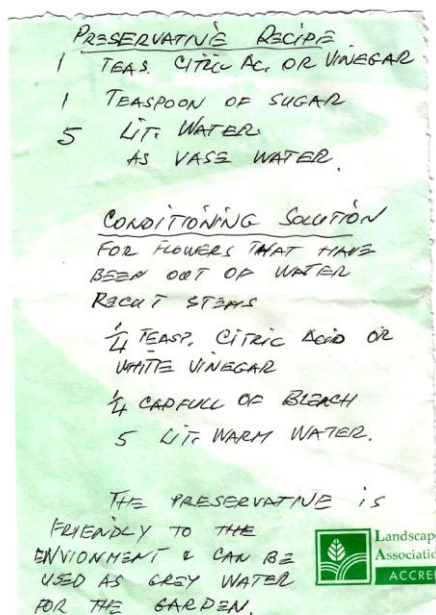 PRESERVATIVE RECIPE
1 TEAS. CITRIC AC. OR VINEGAR
1 TEASPOON OF SUGAR
5 LIT. WATER.
AS VASE WATER.
CONDITIONING SOLUTION
FOR FLOWERS THAT HAVE
BEEN OUT OF WATER
RECUT STEMS
1/4 TEASP. CITRIC ACID OR
WHITE VINEGAR
1/4 CAPFULL OF BLEACH
5 LIT. WARM WATER.
THE PRESERVATIVE IS
FRIENDLY TO THE
ENVIONMENT & CAN BE
USED AS GREY WATER
FOR THE GARDEN.
Landscape
Association
ACCRE